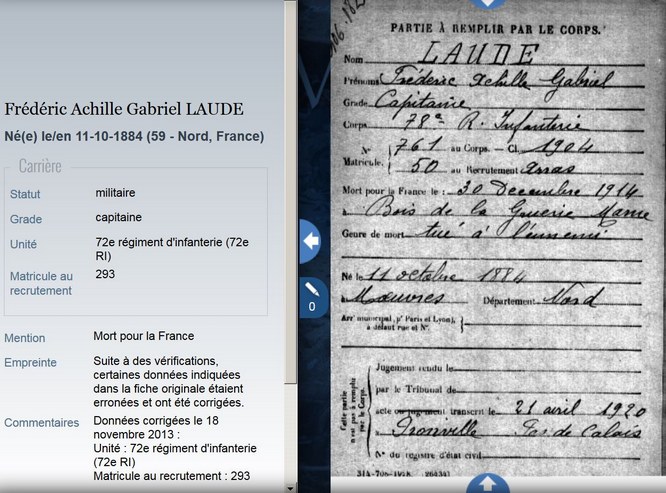 Frédéric Achille Gabriel LAUDE
Né(e) le/en 11-10-1884 (59 - Nord, France)
Carrière
Statut militaire
Grade capitaine
Unité 72e régiment d'infanterie (72e
RI)
Matricule au 293
recrutement
Mention Mort pour la France
Empreinte Suite à des vérifications,
certaines données indiquées
dans la fiche originale étaient
erronées et ont été corrigées.
Commentaires Données corrigées le 18
novembre 2013 :
Unité : 72e régiment d'infanterie
(72e RI)
Matricule au recrutement : 293
0
PARTIE À REMPLIR PAR LE CORPS.
Nom LAUDE
Prénoms Fréderic Achille Gabriel
Grade Capitaine
Corps 78e R. Infanterie
N° 761 au Corps. — Cl. 1904
Matricule. 50 au Recrutement Arras
Mort pour la France le : 30 Decembre 1914
à Bois de la Gruerie Marne
Genre de mort tué à l'ennemi
Né le 11 octobre 1884
à Mœuvres Département Nord
Arrt municipal (pr Paris et Lyon),
à défaut rue et N°.
Cette partie
n'est pas à remplir
par le Corps.
Jugement rendu le
par le Tribunal de
acte ou jugement transcrit le 21 avril 1920
à Ironville Pas de Calais
N° du registre d'état civil